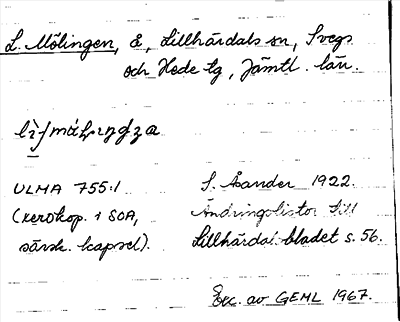 L. Mölingen, E, Lillhärdals sn, Svegs
och Hede tg, Jämtl. län.
ULMA 755:1
S. Åander 1922.
(xerokop. i SOA,
Ändringslistor till
särsk. kapsel).
Lillhärdal-bladet s. 56.
Exc. av GEHL 1967.